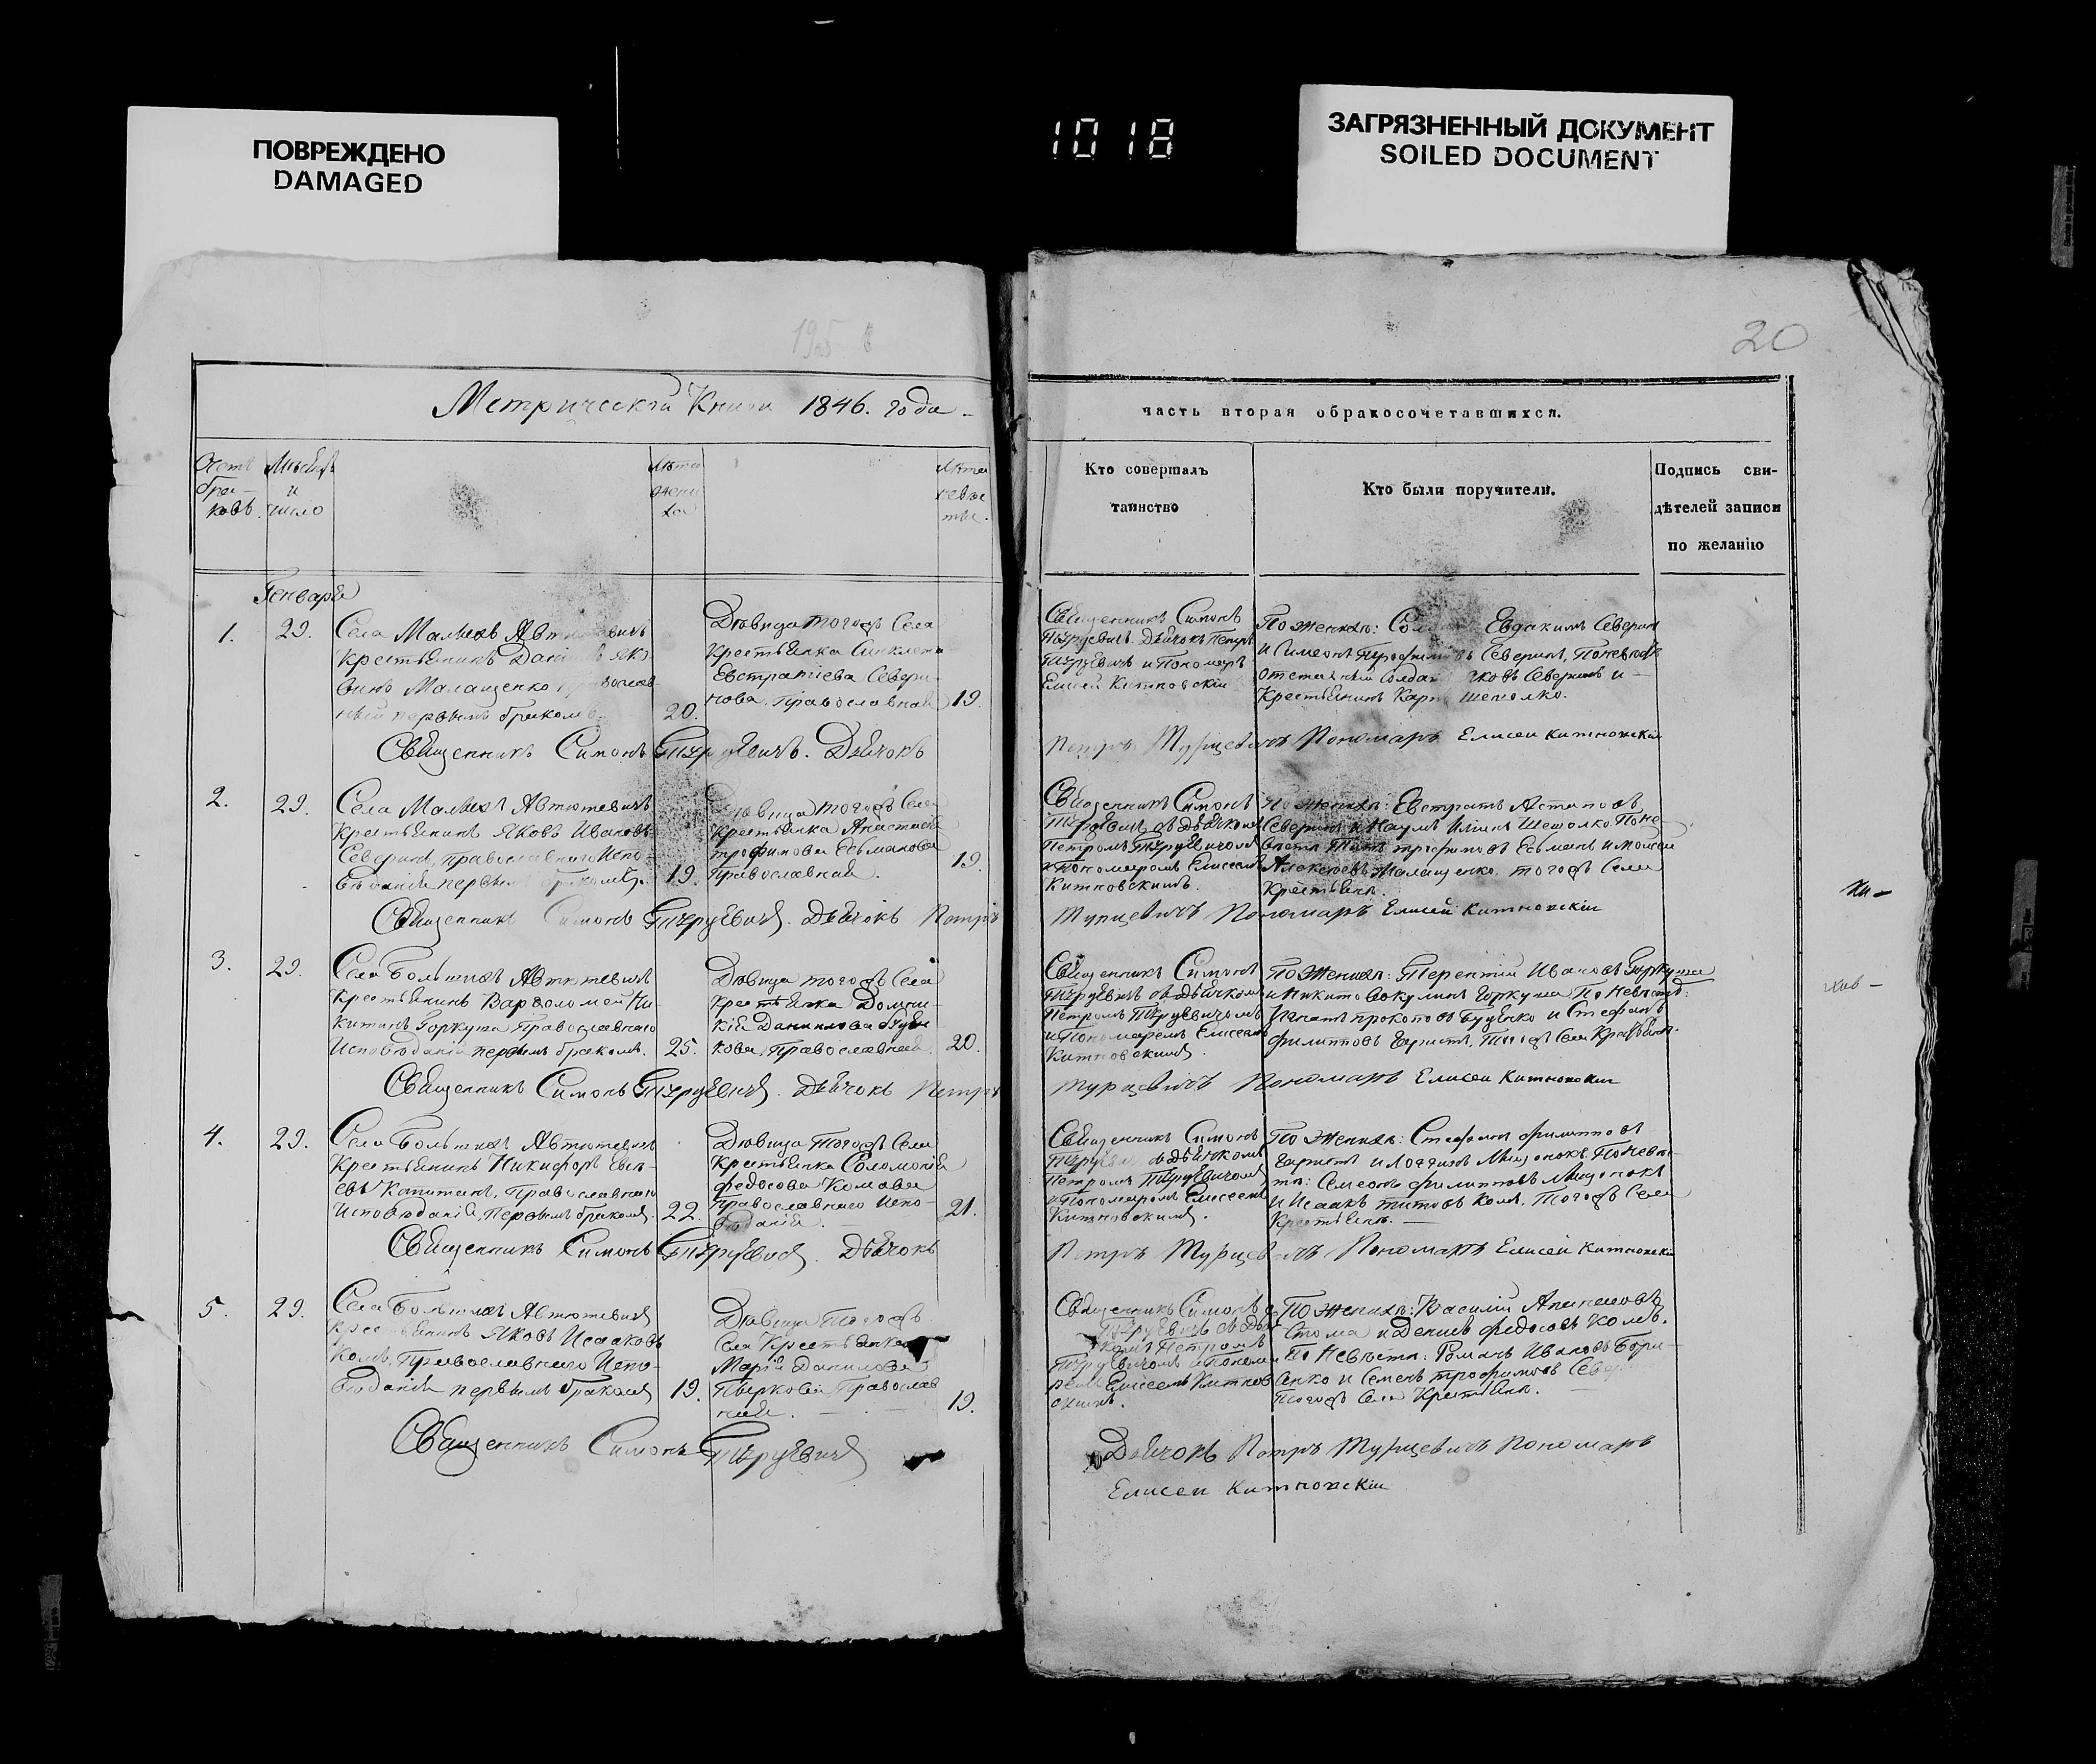 ПОВРЕЖДЕНО
DAMAGED
1018
ЗАГРЯЗНЕННЫЙ ДОКУМЕНТ
SOILED DOCUMENT
195
20
Метрической Книги 1846. года
часть вторая обракосочетавшихся.
Счетъ бра-ковъ.
Мѣсяцъ и число
Лѣта жени ха
Лѣта невѣ сты.
Кто совершалъ
таинство
Кто были поручители.
Подпись сви-
дѣтелей записи
по желанію
Генваря
1.
29.
Села Малыхъ
Крестьянинъ
Малащенко
первымъ бракомъ
20.
Дѣвица тогожъ Села
Крестьянка
Евстратіева Севери-
нова. Православная
19.
Священникъ Симонъ
Дьячокъ Петръ
и Пономарь
Елисей Китновскій
По женихѣ: Евдакимъ Северинъ
и Симеонъ Северинъ, По невѣстѣ
отставный Солдатъ Северинъ и
Крестьянинъ Шеполко.
Священникъ Симонъ Турцевичъ. Дьячокъ
Петръ Турцевичъ Пономарь Елисей Китновскій
2.
29.
Села Малыхъ Автютевичъ
Крестьянинъ Яковъ Ивановъ
Северинъ, православнаго Испо-
вѣданія первымъ бракомъ.
19.
Дѣвица тогожъ Села
Крестьянка Анастасія
Трофимова Есьманова
Православная.
19.
Священникъ Симонъ
Турцевичъ съ Дьячкомъ
Петромъ Турцевичомъ
и Пономаремъ Елисеемъ
Китновскимъ.
По женихѣ: Евстратъ
Северинъ и Наумъ Шеполко. По не-
вѣстѣ Титъ Трофимовъ Есьманъ и
Алексѣевъ Малащенко. тогожъ Села
Крестьяне.
Священникъ Симонъ Турцевичъ. Дьячокъ Петръ
Турцевичъ Пономарь Елисей Китновскій
3.
29.
Села Большихъ Автютевичъ
Крестьянинъ Варфоломей Ни-
китинъ Горкуша Православнаго
Исповѣданія первымъ бракомъ.
25.
Дѣвица тогожъ Села
Крестьянка Домни-
кія Данилова
Православная.
20.
Священникъ Симонъ
Турцевичъ съ Дьячкомъ
Петромъ Турцевичомъ
и Пономаремъ Елисеемъ
Китновскимъ.
По Женихѣ: Терентій Ивановъ Горкуша
и Никита Горкуша По Невѣстѣ:
Игнатъ Прокоповъ и Стефанъ
Филиповъ тогожъ Села Крестьяне.
Священникъ Симонъ Турцевичъ. Дьячокъ Петръ
Турцевичъ Пономарь Елисей Китновскій
4.
29.
Села Большихъ Автютевичъ
Крестьянинъ Никифоръ
Капитанъ, Православнаго
Исповѣданія, Первымъ бракомъ.
22.
Дѣвица Тогожъ Села
Крестьянка Соломонія
Федосова Комова
Православнаго Испо-
вѣданія.
21.
Священникъ Симонъ
Турцевичъ съ Дьячкомъ
Петромъ Турцевичомъ
и Пономаремъ Елисеемъ
Китновскимъ.
По Женихѣ: Стефанъ Филиповъ
и Мицонокъ. По невѣс-
тѣ: Семенъ Филиповъ Мицонокъ
и Исаакъ Титовъ Комъ. Тогожъ Села
Крестьяне.
Священникъ Симонъ Турцевичъ. Дьячокъ
Петръ Турцевичъ Пономарь Елисей Китновскій
5.
29.
Села Большихъ Автютевичъ
Крестьянинъ Яковъ Исааковъ
Комъ, Православнаго Испо-
вѣданія первымъ бракомъ
19.
Дѣвица Тогожъ
Села Крестьянка
Марія Данилова
Православ
ная.
19.
Священникъ Симонъ
Турцевичъ съ Дьяч
комъ Петромъ
Турцевичомъ и Понома
ремъ Елисеемъ Китнов
скимъ.
По Женихѣ: Василій
и Денисъ Федосовъ Комъ.
По Невѣстѣ: Романъ Ивановъ
и Семенъ Трофимовъ
Тогожъ Села Крестьяне.
Священникъ Симонъ Турцевичъ
Дьячокъ Петръ Турцевичъ Пономарь
Елисей Китновскій